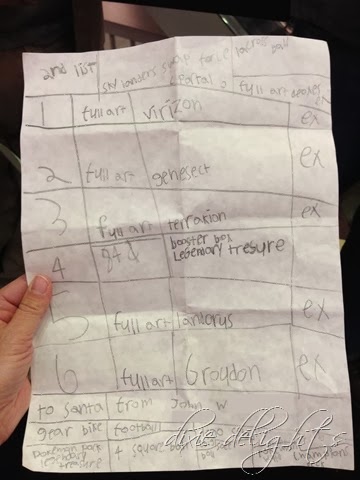 2nd list skylanders swap force lacross ball
portal 3 full art deoxes ex
1 full art virizon ex
2 full art genesect ex
3 full art terrakion ex
4 booster box
Legendary tresure
5 full art landorus
6 full art Groudon ex
to santa from John W
gear bike football
4 square
Legendary box
tresure
dixie delights